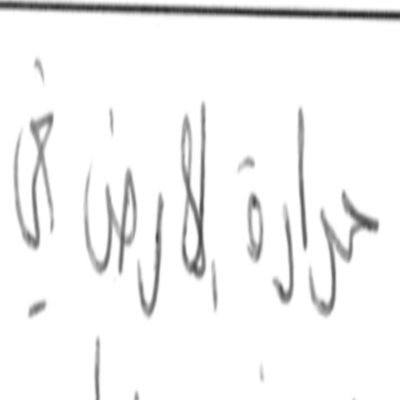 حرارة الارض في